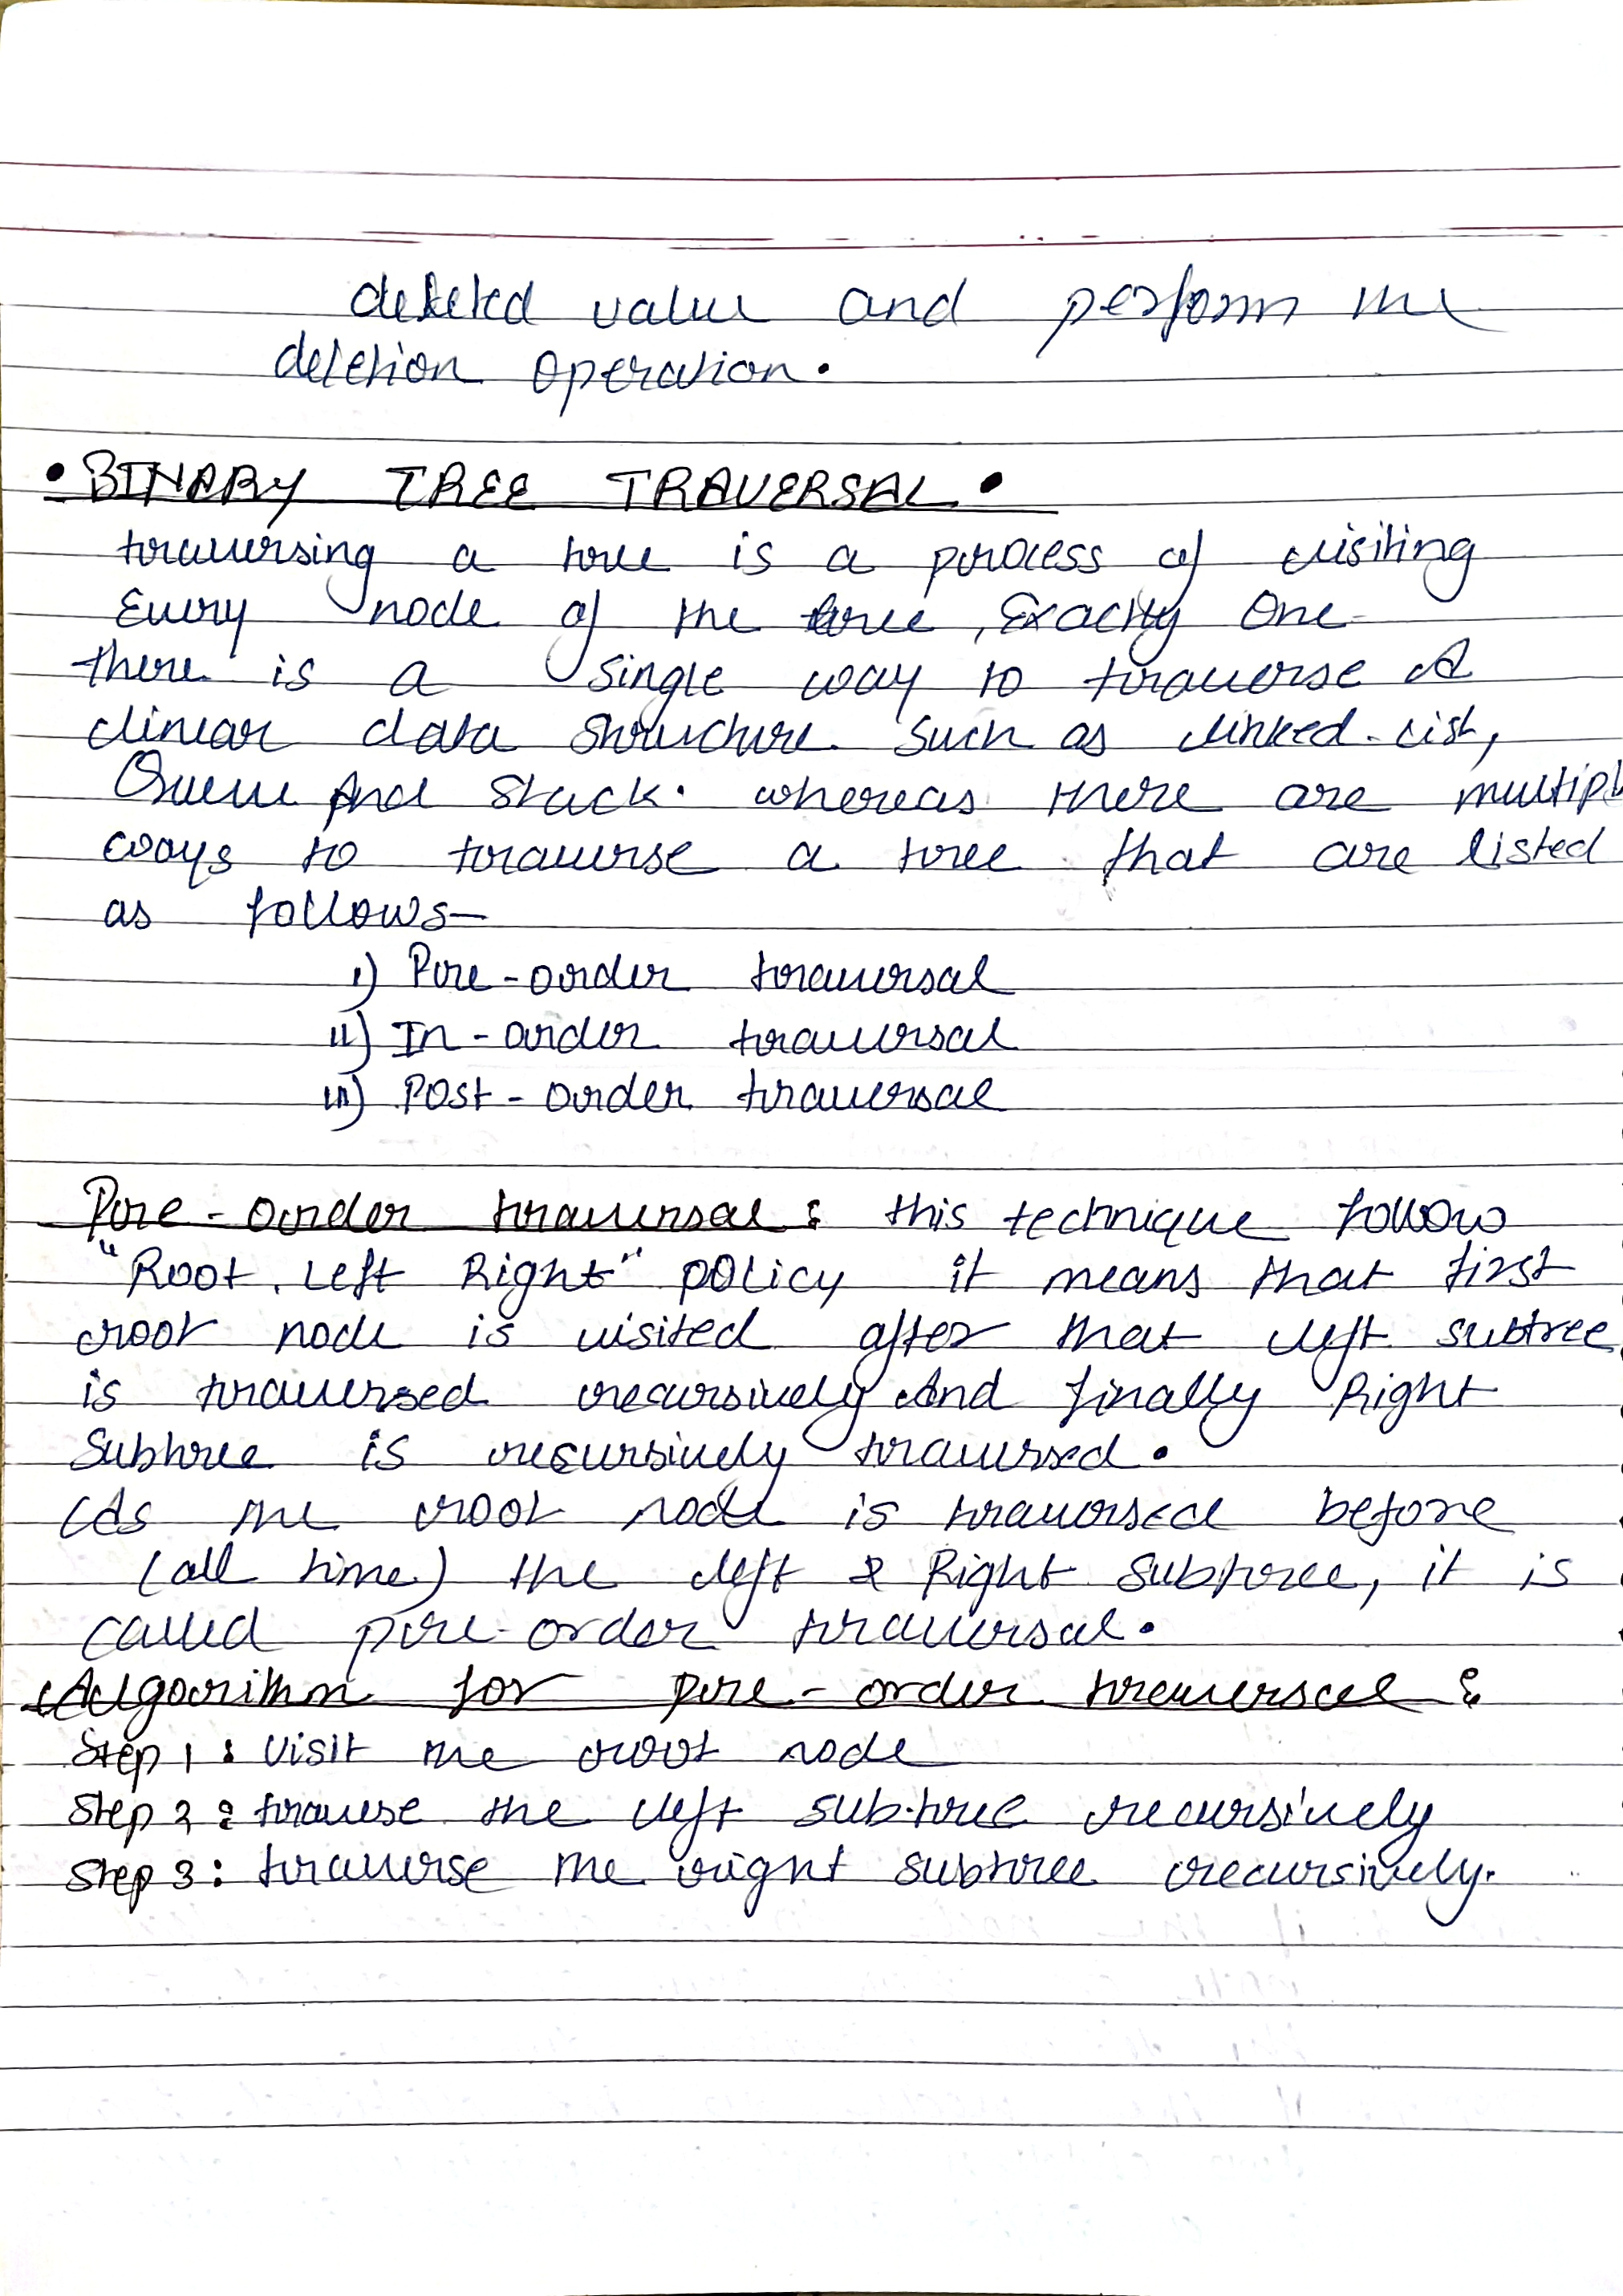 deleted value and perform the
deletion operation.
• BINARY TREE TRAVERSAL •
traversing a tree is a process of visiting
Every node of the tree, Exactly One
there is a single way to traverse A
linear data structure such as linked list,
Queue And Stack. whereas there are multipl
ways to traverse a tree that are listed
as follows—
i) Pre-order traversal
ii) In-order traversal
iii) Post-order traversal
Pre-order traversal: this technique follow
"Root. Left Right" policy it means that first
root node is visited after that left subtree
is traversed recursively And finally Right
Subtree is recursively traversed.
(As the root node is traversed before
(all time) the left & Right Subtree, it is
called pre-order traversal.
Algorithm for pre-order traversal:
Step 1: Visit the root node
Step 2: travese the left sub-tree recursively
Step 3: traverse the right subtree recursively.